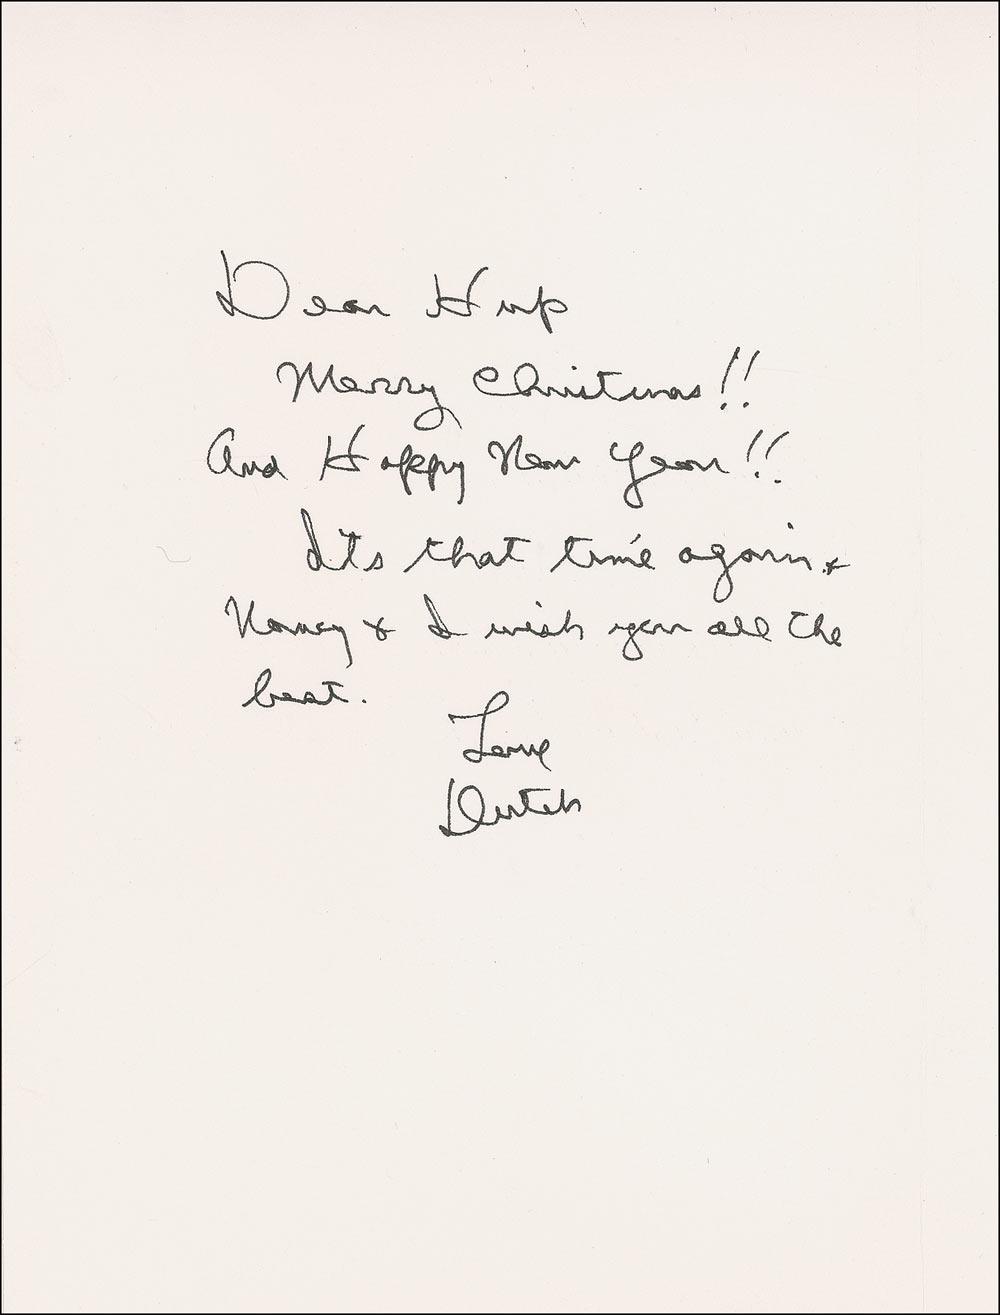 Dear Hup
Merry Christmas!!
And Happy New Year!!
Its that time again &
Nancy & I wish you all the
best.
Love
Dutch